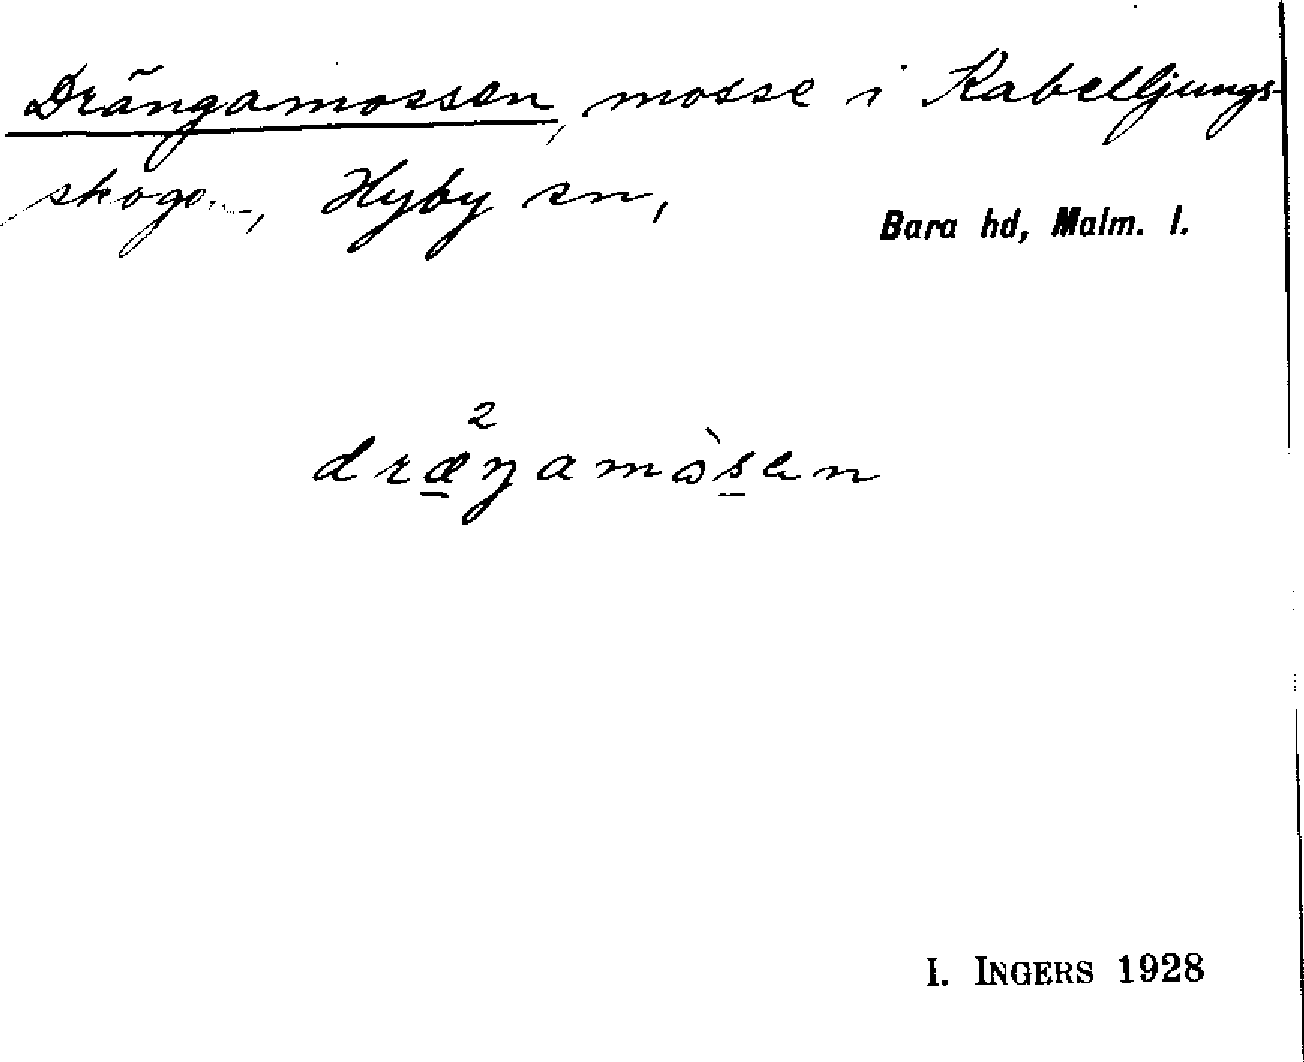 Drängamossen, mosse i Kabelljungs-
skogen, Hyby sn,
Bara hd, Malm. l.
2
dræŋamòsen
I. INGERS 1928